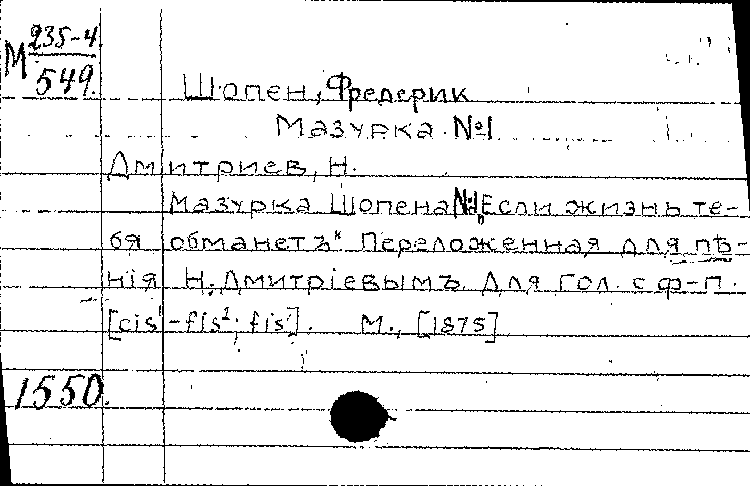 М 235-4
549.
Шопен, Фредерик
Мазурка №1
Дмитриев, Н.
Мазурка Шопена №1 „Если жизнь те-
бя обманетъ" Переложенная для пѣ-
нія Н. Дмитріевымъ. Для гол. с ф-п.
[cis¹-fis²; fis¹]. М., [1875]
1550.